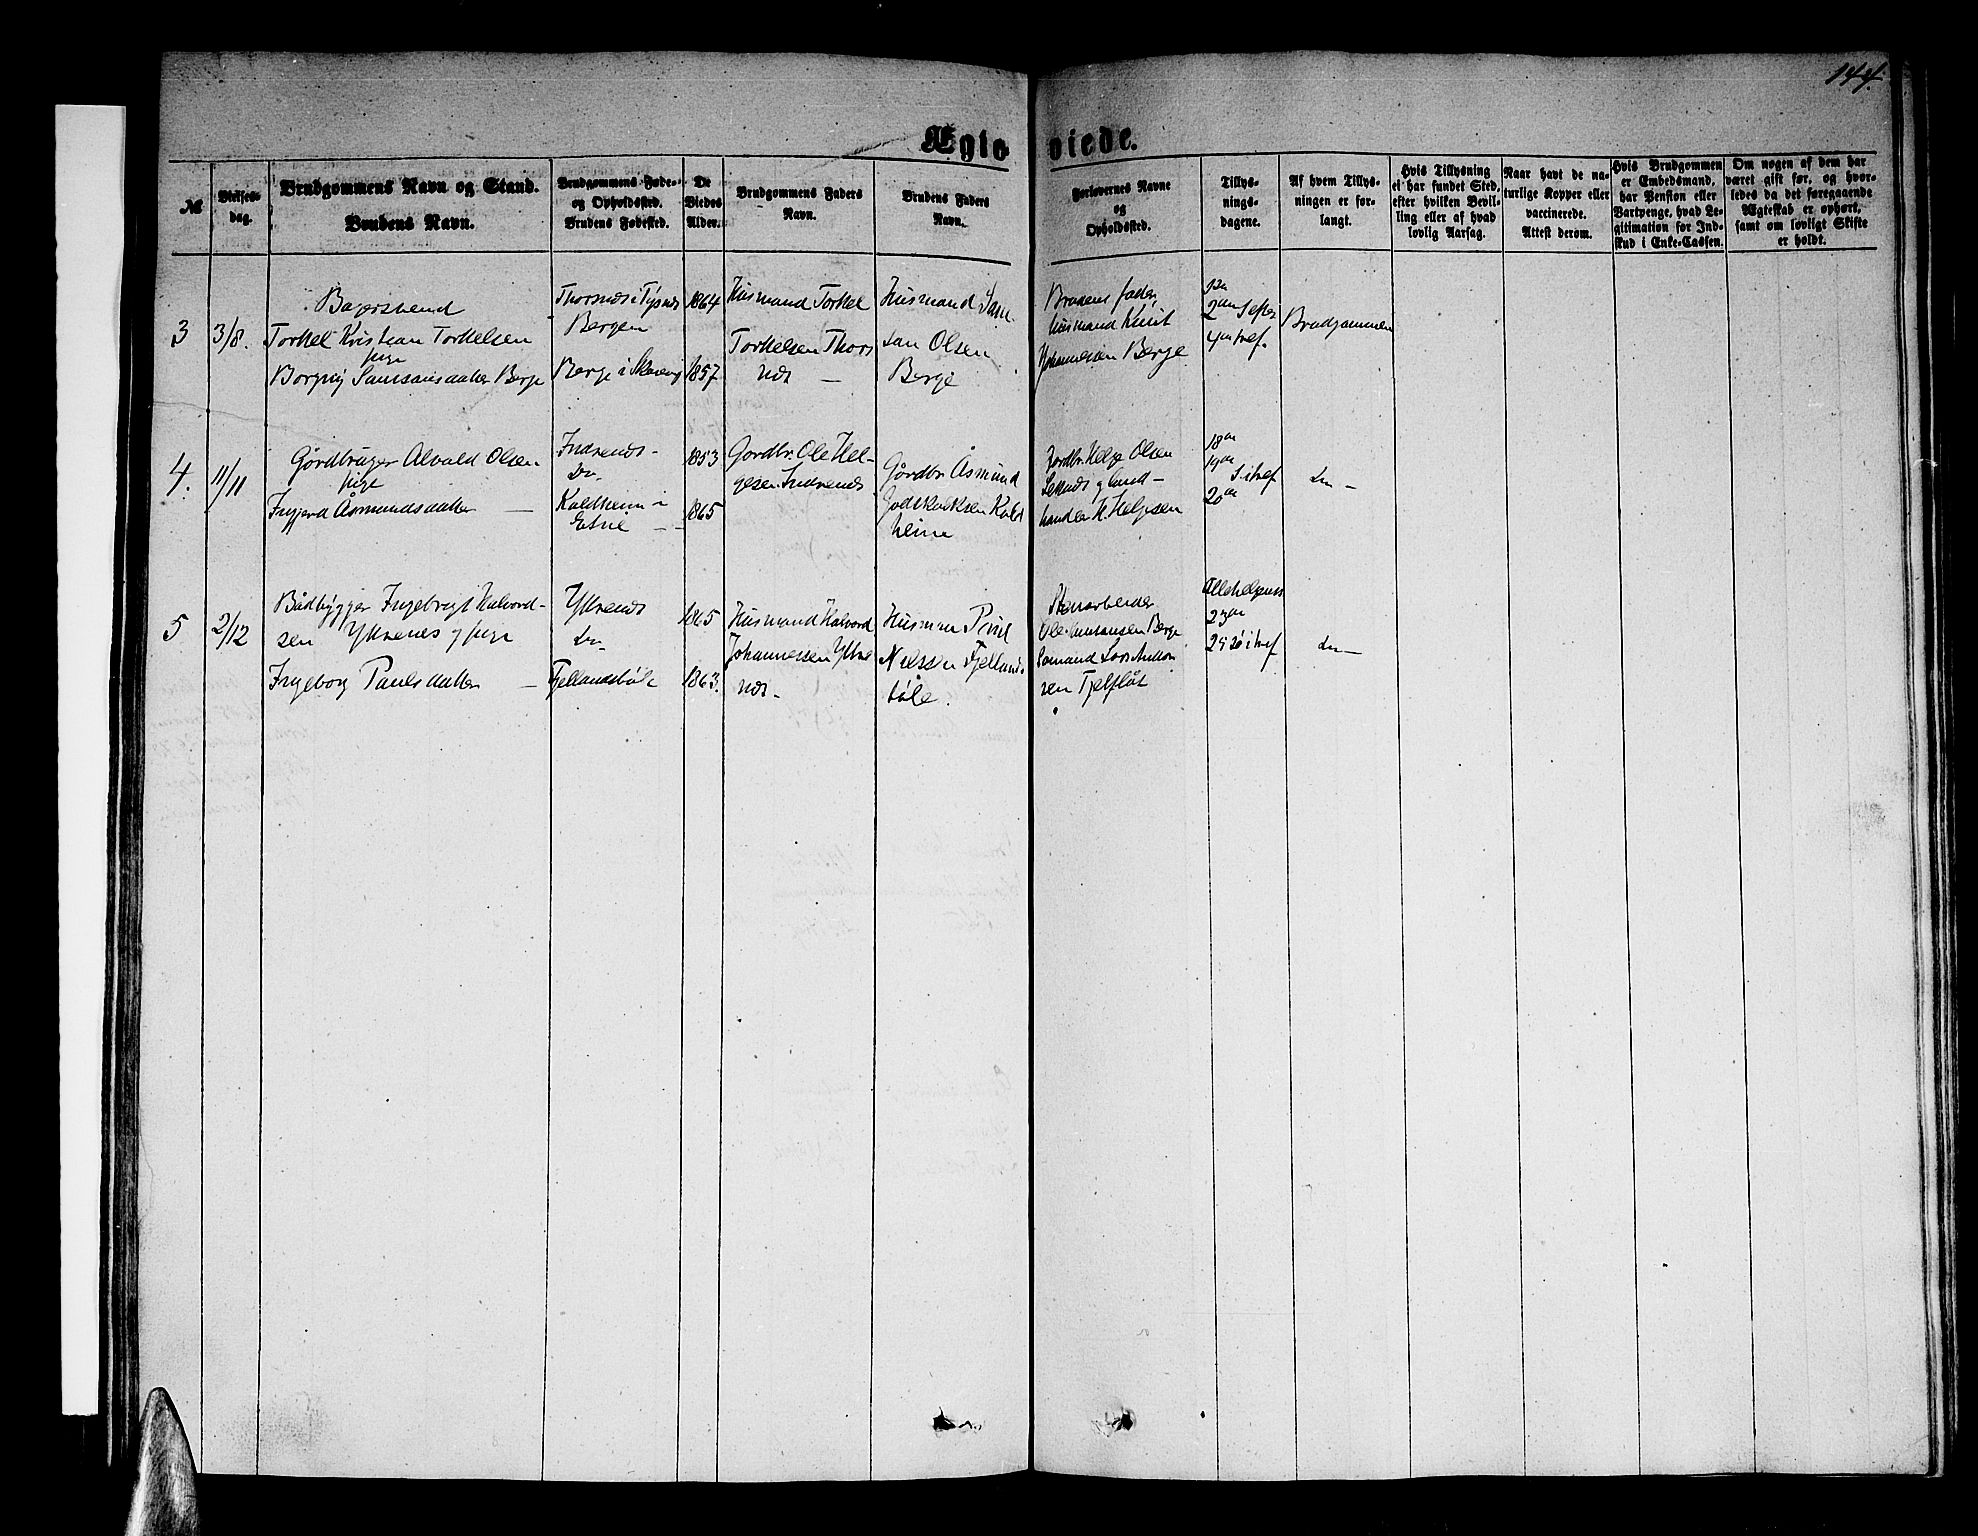 144.
Ægte viede.
№
Vielses-
dag.
Brudgommens Navn og Stand.
Brudens Navn.
Brudgommens Føde-
og Opholdssted.
Brudens Fødested.
De
Viedes
Alder.
Brudgommens Faders
Navn.
Brudens Faders
Navn.
Forlovernes Navne
og
Opholdssted.
Tillys-
nings-
dagene.
Af hvem Tillys-
ningen er for-
langt.
Hvis Tillysning
ei har fundet Sted,
efter hvilken Bevil-
ling eller af hvad
lovlig Aarsag.
Naar havt de na-
turlige Kopper eller
vaccinerede.
Attest derom.
Hvis Brudgommen
er Embedsmand,
har Pension eller
Vartpenge, hvad Le-
gitimation for Ind-
skud i Enke-Cassen.
Om nogen af dem har
været gift før, og hvor-
ledes da det foregaaende
Ægteskab er ophørt,
samt om lovligt Skifte
er holdt.
3
3/8.
Bagersvend
Torkel Kristian Torkelsen
pige
Samsonsdatter Berge
Thorsnæs i Tysnæs
Bergen
Berge i
1864
1857
Husmand Torkel
Torkelsen Thors
næs —
Husmand Sam
son Olsen
Berge
Brudens fader,
husmand Knut
Johannesen Berge
1ste
2den S efter
4de tref.
Brudgommen
4.
11/11
Gårdbruger Alvald Olsen
pige
Ingjerd Åsmundsdatter —
Indrenæs -
Do.
Kaldheim i
Etne — -
1853
1865
Gårdbr. Ole Hel-
gesen Indrenæs
Gårdbr. Åsmund
Godskalksen Kald
heim
Jordbr. Helge Olsen
og land-
handler H. Helgesen
18de
19de
S i tref
20de
do —
5
2/12
Bådbygger Ingebrigt Halvord-
sen Ytrenes og pige
Ingeborg Paulsdatter —
Ytrenæs
Do.
1865
1863.
Husmand Halvord
Johannessen Ytre
næs.
Husman Paul
Nilssen Fjellands-
bøle.
Ole Berge
sen Tjelflåt
Allehelgens
23de
24 Sø i tref
do —